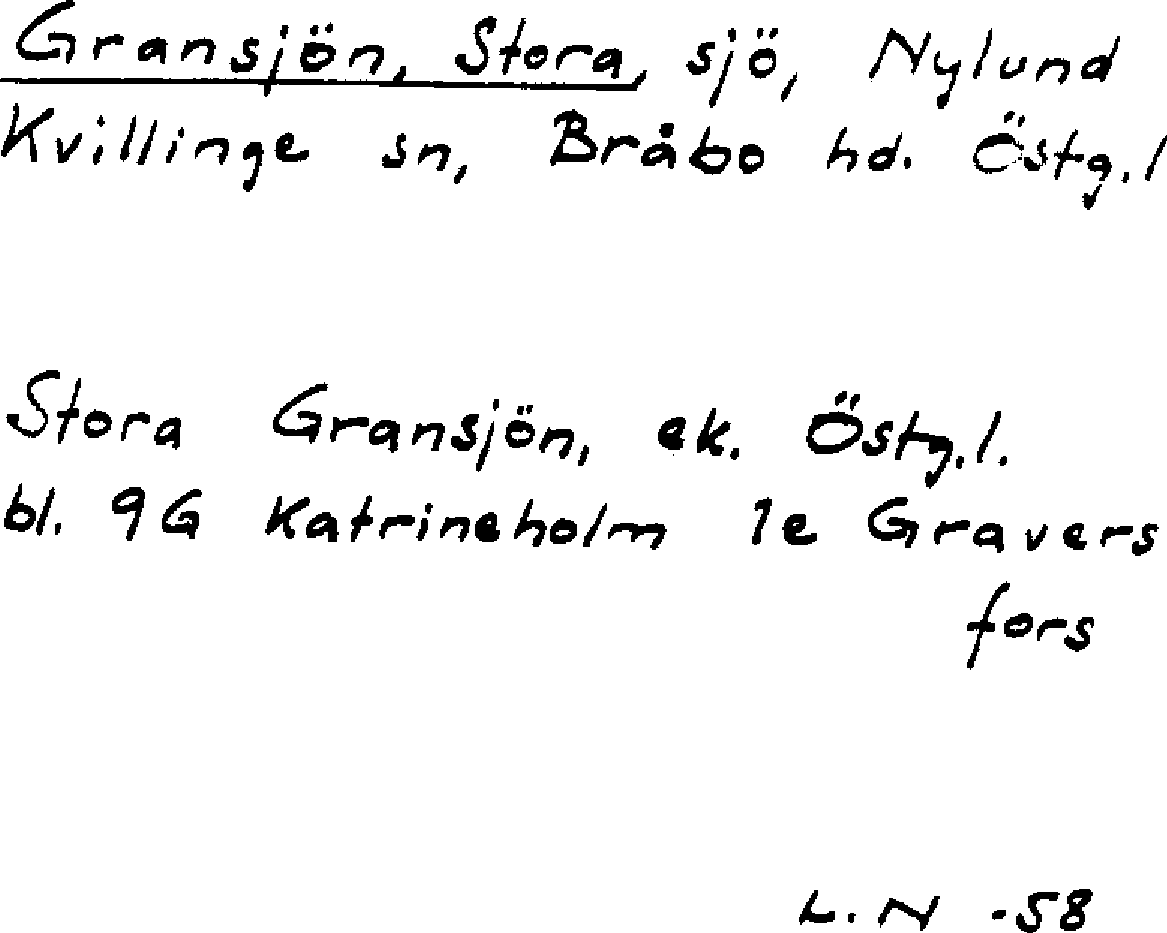 Gransjön, Stora, sjö, Nylund
Kvillinge sn, Bråbo hd. Östg.l
Stora Gransjön, ek. Östg.l.
bl. 9G Katrineholm 1e Gravers
fors
L.N -58